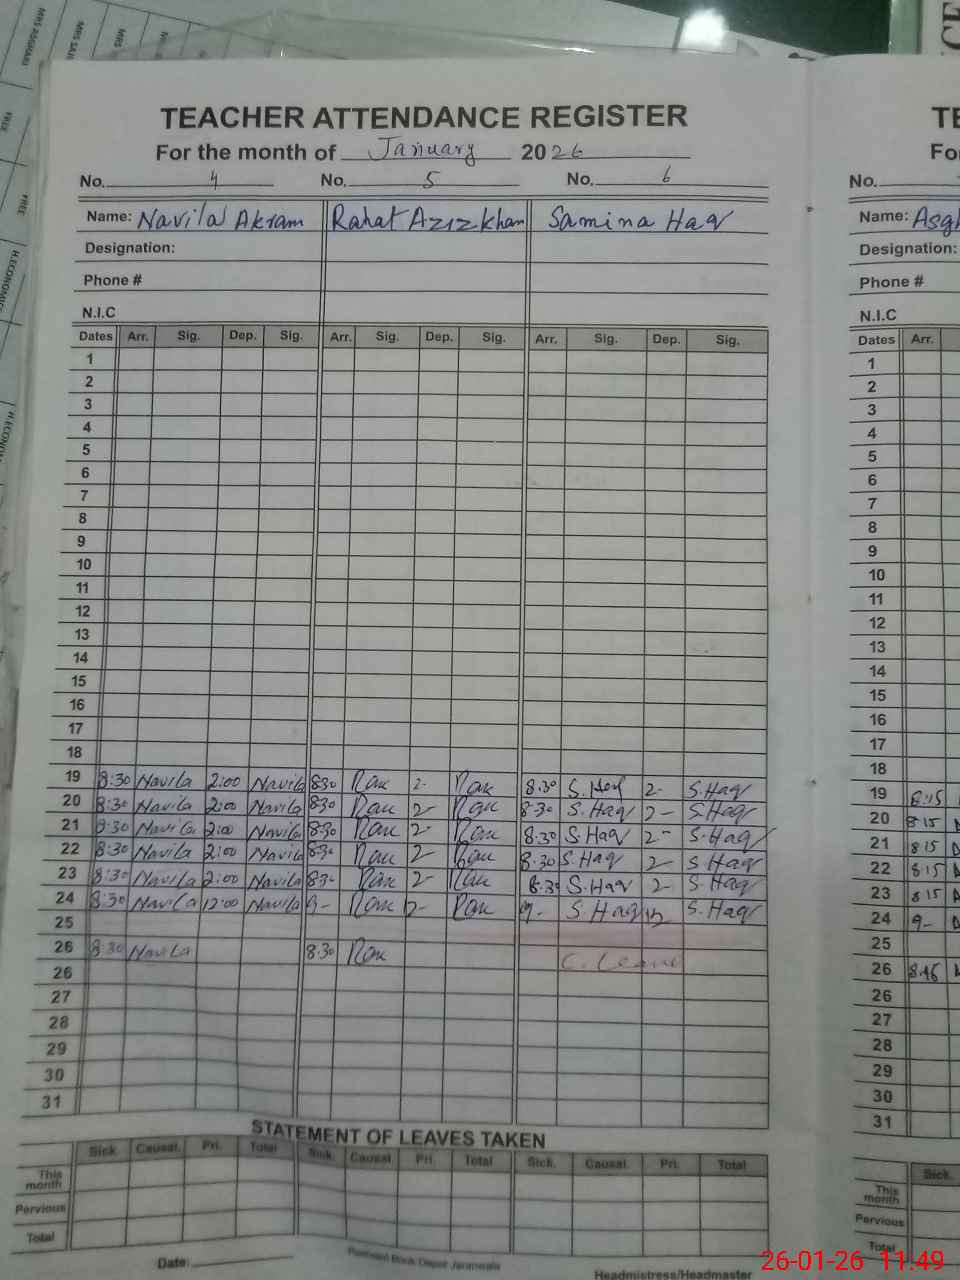 MRS ASGHARI
FREE
FREE
H.ECONOMICS
TEACHER ATTENDANCE REGISTER
For the month of January 2026
No. 4 No. 5 No. 6
Name: Navila Akram Rahat Aziz khan Samina Haq
Designation:
Phone #
N.I.C
Dates Arr. Sig. Dep. Sig. Arr. Sig. Dep. Sig. Arr. Sig. Dep. Sig.
1
2
3
4
5
6
7
8
9
10
11
12
13
14
15
16
17
18
19 8:30 Navila 2:00 Navila 8:30 2- 8.30 S.Haq 2- S.Haq
20 8:30 Navila 2:00 Navila 8:30 2- 8.30 S.Haq 2- S.Haq
21 8:30 Navila 2:00 Navila 8:30 2- 8.30 S.Haq 2- S.Haq
22 8:30 Navila 2:00 Navila 8:30 2- 8.30 S.Haq 2- S.Haq
23 8:30 Navila 2:00 Navila 8:30 2- 8.30 S.Haq 2- S.Haq
24 8:30 Navila 12:00 Navila 9- 12- 9- S.Haq 12 S.Haq
25
26 8:30 Navila 8.30 C. Leave
26
27
28
29
30
31
STATEMENT OF LEAVES TAKEN
Sick. Causal. Pri. Total Sick. Causal. Pri. Total Sick. Causal. Pri. Total
This month
Pervious
Total
Date:
Headmistress/Headmaster
No.
Name: Asgh
Designation:
Phone #
N.I.C
Dates Arr.
1
2
3
4
5
6
7
8
9
10
11
12
13
14
15
16
17
18
19 8:15
20 8.15
21 8.15
22 8.15
23 8.15
24 9-
25
26 8.45
26
27
28
29
30
31
Sick.
This month
Pervious
Total
26-01-26 11:49